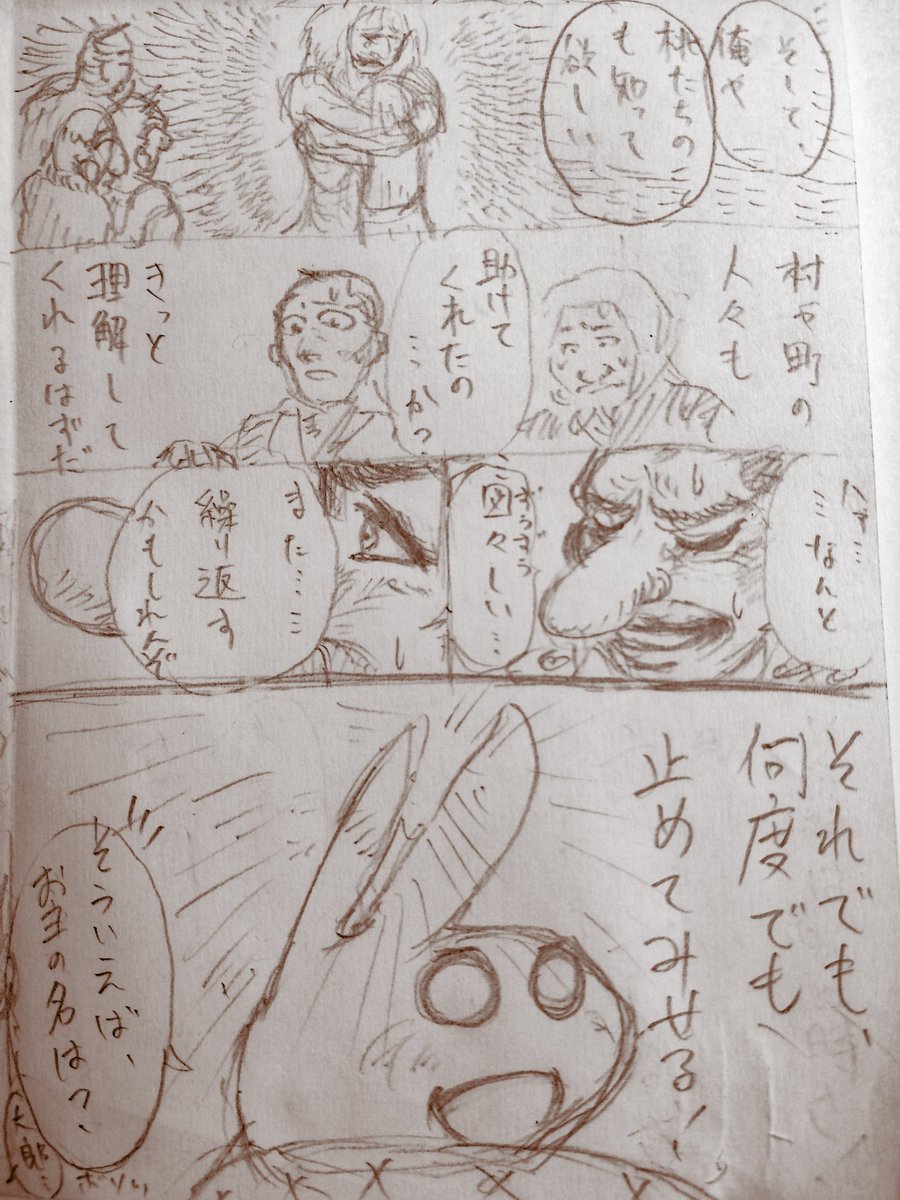 そして、
俺や
桃たちの
も知って
欲しい
村や町の
人々も
助けて
くれたの
…か?
きっと
理解して
くれるはずだ
…なんと
ずうずう
図々しい…
また……
繰り返す
かもしれんぞ
それでも、
何度でも、
止めてみせる!
そういえば、
お主の名は?
太郎…
ボソッ